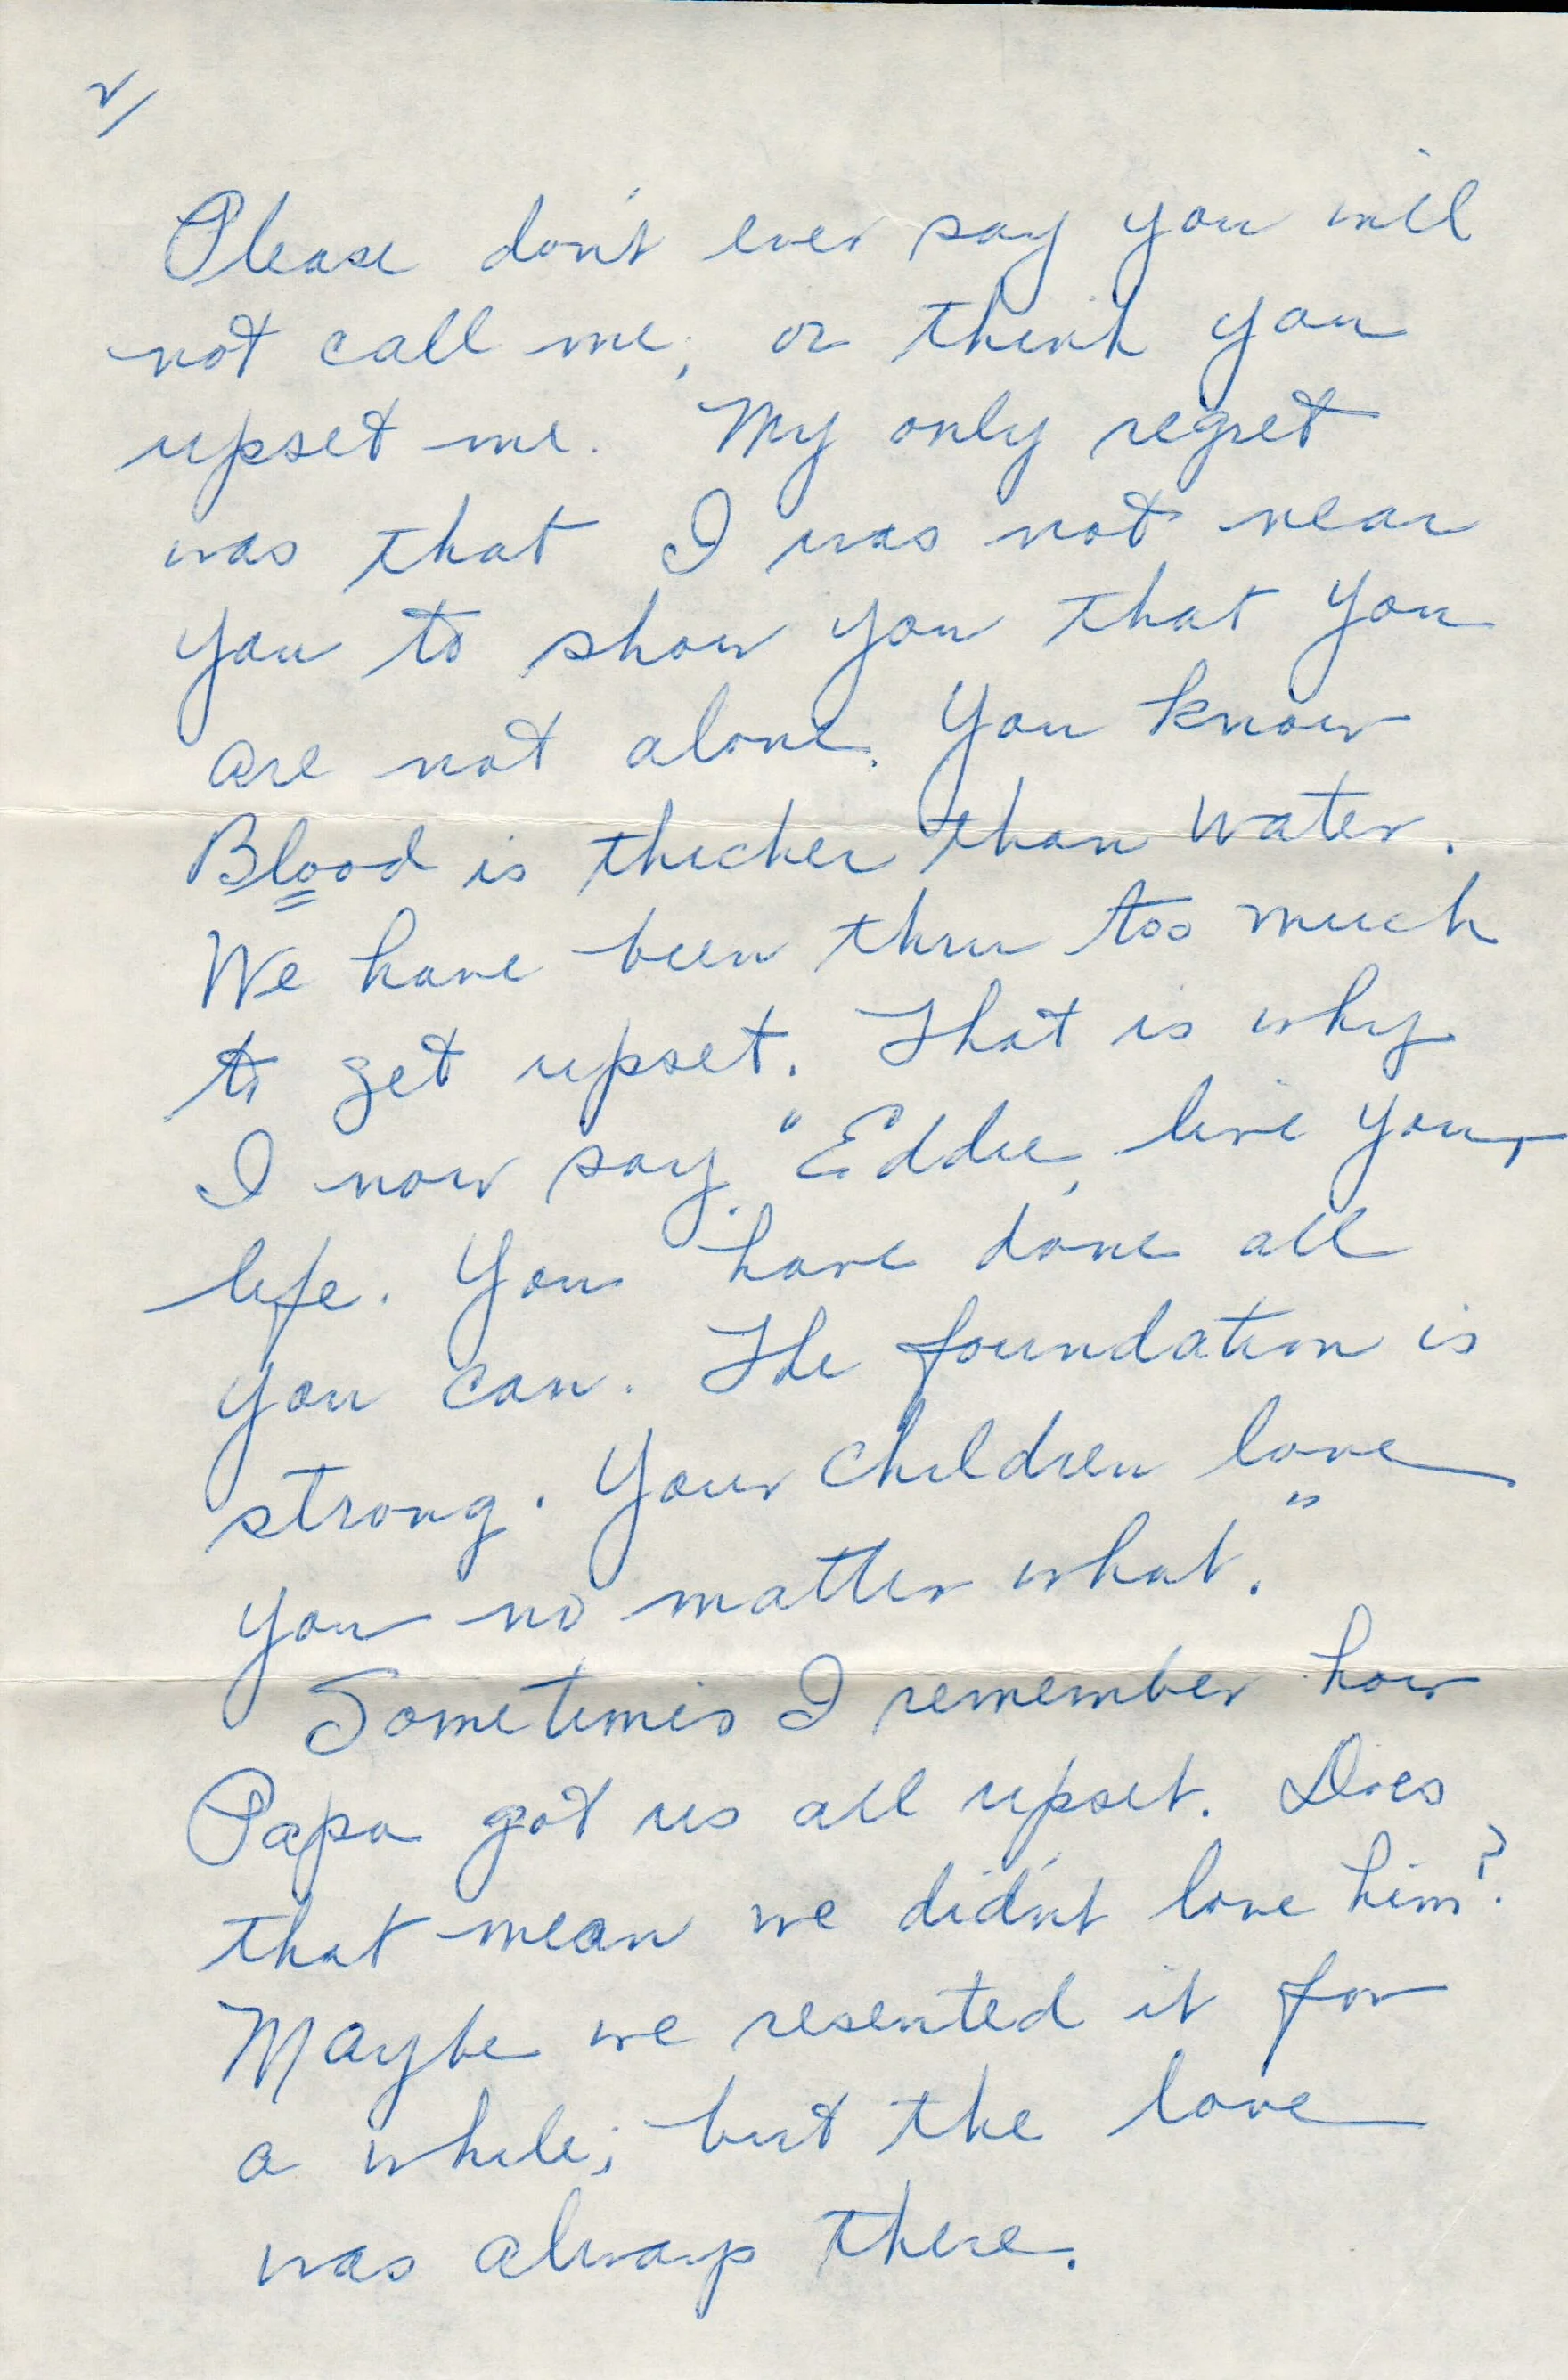 2/
Please don't ever say you will
not call me, or think you
upset me. My only regret
was that I was not near
you to show you that you
are not alone. You know
Blood is thicker than water.
We have been thru too much
to get upset. That is why
I now say, "Eddie, live your
life. You have done all
you can. The foundation is
strong. Your children love
you no matter what."
Sometimes I remember how
Papa got us all upset. Does
that mean we didn't love him?
Maybe we resented it for
a while; but the love
was always there.